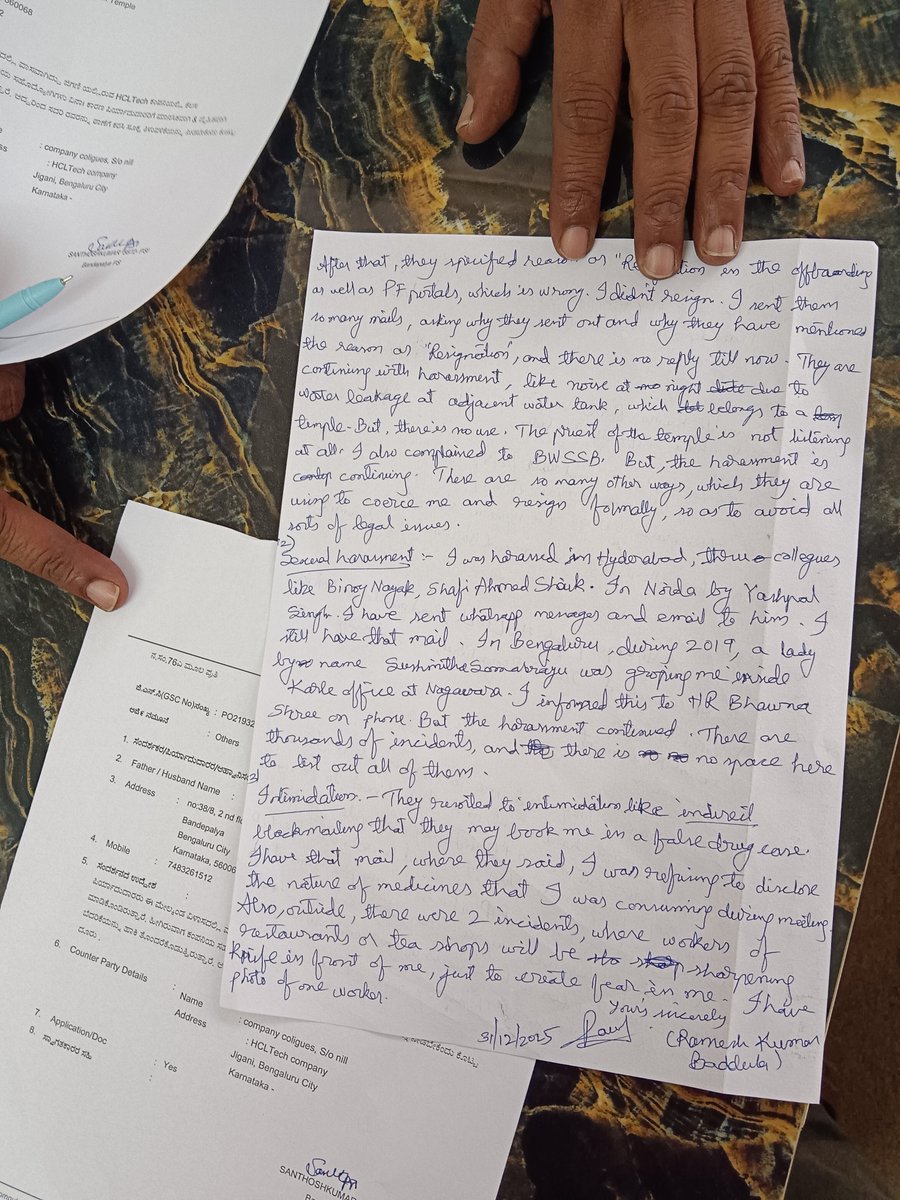 560068
Temple
: company coligues, S/o nill
: HCLTech company
Jigani, Bengaluru City
Karnataka -
SANTHOSHKUMAR
Bandepalya PS
After that, they specified reason as "Resignation" in the offboarding
as well as PF portals, which is wrong. I didn't resign. I sent them
so many mails, asking why they sent out and why they have mentioned
the reason as "Resignation", and there is no reply till now. They are
continuing with harassment, like noise at night due to
water leakage at adjacent water tank, which belongs to a
temple. But, there is no use. The priest of the temple is not listening
at all. I also complained to BWSSB. But, the harassment is
continuing. There are so many other ways, which they are
using to coerce me and resign formally, so as to avoid all
sorts of legal issues.
2)
Sexual harassment :- I was harassed in Hyderabad, three collegues
like Binoy Nayak, Shafi Ahmed Shaik. In Noida by Yashpal
Singh. I have sent whatsapp messages and email to him. I
still have that mail. In Bengaluru, during 2019, a lady
by name Sushmitha Somabraju was groping me inside
Karle office at Nagawara. I informed this to HR Bhawna
Shree on phone. But the harassment continued. There are
thousands of incidents, and there is no space here
to list out all of them.
3)
Intimidation. - They resorted to intimidation like indirect
blackmailing that they may book me in a false drug case.
I have that mail, where they said, I was refusing to disclose
the nature of medicines that I was consuming during meeting.
Also, outside, there were 2 incidents, where workers of
restaurants or tea shops will be sharpening
knife in front of me, just to create fear in me. I have
photo of one worker.
Yours sincerely
31/12/2025
(Ramesh Kumar
Baddula)
ನ.ಸಂ.76ಎ ಮೂಲ ಪ್ರತಿ
ಜಿ.ಎಸ್.ಸಿ(GSC No)ಸಂಖ್ಯೆ : PO21932
ಅರ್ಜಿ ನಮೂನೆ : Others
1.
2. Father / Husband Name :
3. Address : no:38/8, 2 nd
Bandepalya
Bengaluru City
Karnataka, 56006
4. Mobile : 7483261512
5. ಸಂದರ್ಶನದ ಉದ್ದೇಶ :
6. Counter Party Details :
Name :
Address : company coligues, S/o nill
: HCLTech company
Jigani, Bengaluru City
Karnataka -
7. Application/Doc : Yes
8. ಸ್ವಾಗತಕಾರರ ಸಹಿ :
SANTHOSHKUMAR